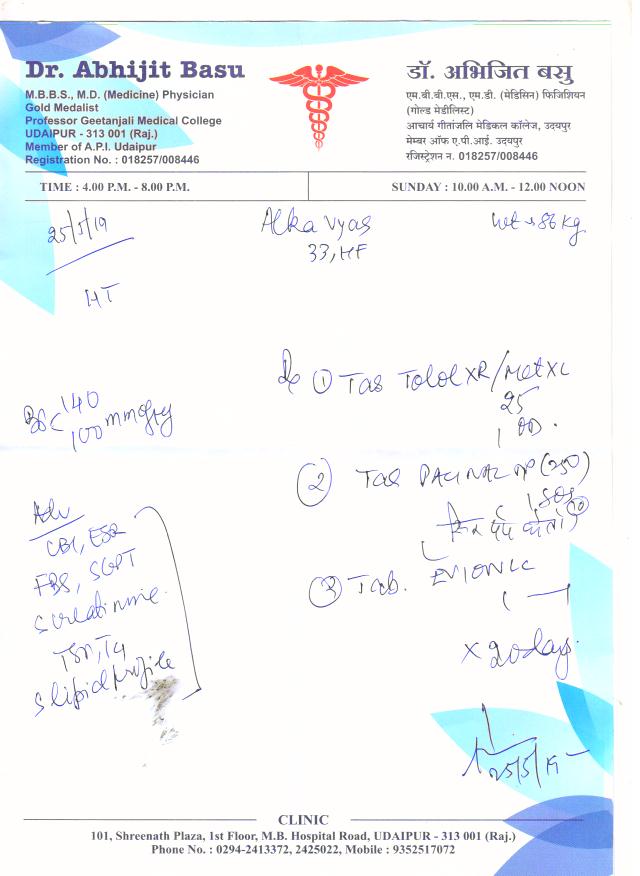 Dr. Abhijit Basu
M.B.B.S., M.D. (Medicine) Physician
Gold Medalist
Professor Geetanjali Medical College
UDAIPUR - 313 001 (Raj.)
Member of A.P.I. Udaipur
Registration No. : 018257/008446
डॉ. अभिजित बसु
एम.बी.बी.एस., एम.डी. (मेडिसिन) फिजिशियन
(गोल्ड मेडीलिस्ट)
आचार्य गीतांजलि मेडिकल कॉलेज, उदयपुर
मेम्बर ऑफ ए.पी.आई. उदयपुर
रजिस्ट्रेशन न. 018257/008446
TIME : 4.00 P.M. - 8.00 P.M.
SUNDAY : 10.00 A.M. - 12.00 NOON
25/5/19
Alka Vyas
33, HF
wt → 86 kg
HT
140
100 mmHg
① Tab Tolol XR/Met XL
25
1 OD.
② Tab PACIMAL MP (250)
1 SOS
10
③ Tab. EVION LC
x 20 days
Adv
CBC, ESR
FBS, SGPT
S creatinine
TSH, T4
S lipid profile
25/5/19
CLINIC
101, Shreenath Plaza, 1st Floor, M.B. Hospital Road, UDAIPUR - 313 001 (Raj.)
Phone No. : 0294-2413372, 2425022, Mobile : 9352517072